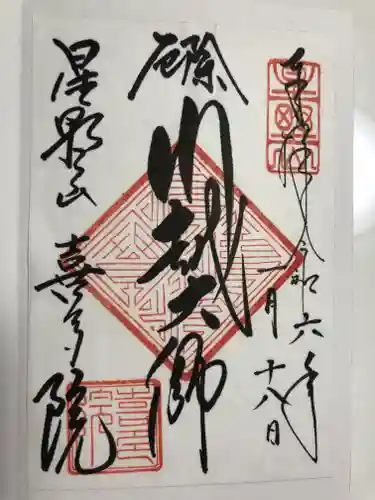 奉拝 令和六年
一月十八日
厄除
川越大師
星野山
喜多院